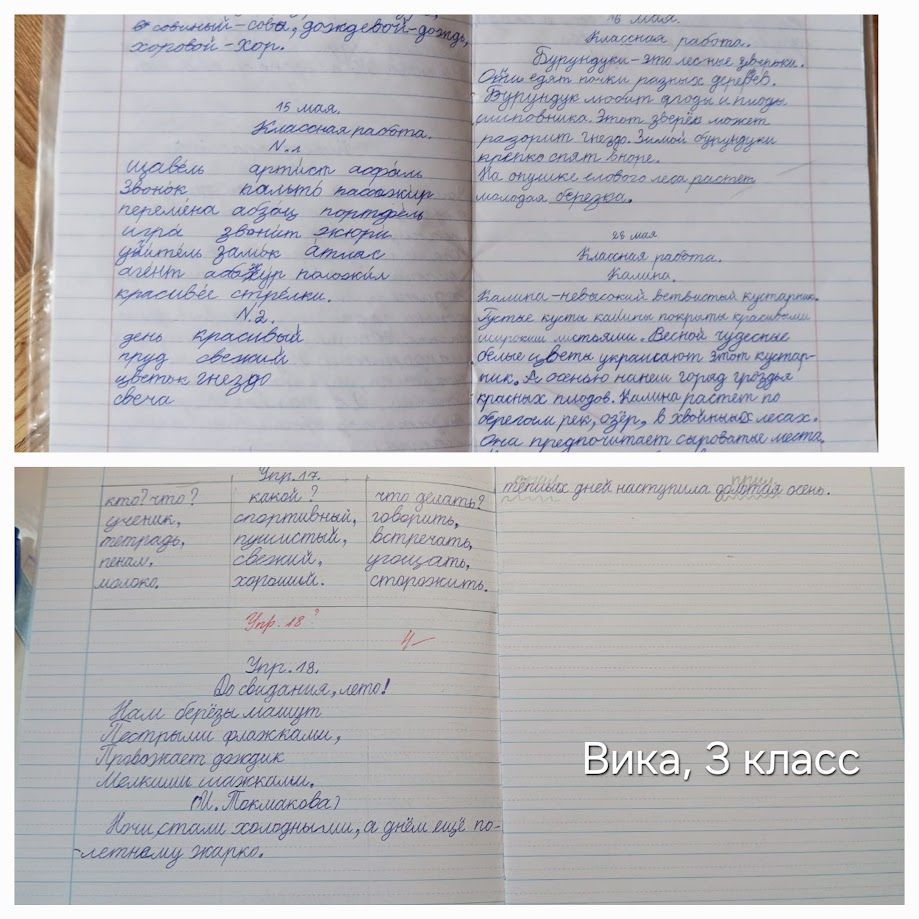 совиный-сова, дождевой-дождь,
хоровой-хор.
15 мая.
Классная работа.
N.1
щавель артист асфаль
звонок пальто пассажир
перемена абзац портфель
игра звонит жюри
учитель замок атлас
агент абажур положил
красивее стрелки.
N.2.
день красивый
пруд свежий
цветок гнездо
свеча
16 мая.
Классная работа.
Бурундуки-это лесные зверьки.
Они едят почки разных деревев.
Бурундук любит ягоды и плоды
шиповника. Этот зверёк может
разорит гнездо. Зимой бурундуки
крепко спят в норе.
На опушке елового леса растёт
молодая березка.
28 мая.
Классная работа.
Калина.
Калина-невысокий ветвистый кустарник.
Густые кусты калины покрыты красивыми
широкими листьями. Весной чудесные
белые цветы украшают этот кустар-
ник. А осенью на нем горят гроздья
красных плодов. Калина растет по
берегам рек, озёр, в хвойных лесах.
Она предпочитает сыроватые места.
Упр.17.
кто? что? какой? что делать?
ученик, спортивный, говорить,
тетрадь, пушистый, встречать,
пенал, свежий, угощать,
молоко. хороший. сторожить.
Упр. 18?
4-
Упр.19.
До свидания, лето!
Нам берёзы машут
Пестрыми флажками,
Провожает дождик
Мелкими шажками.
(И. Токмакова)
Ночи стали холодными, а днём ещё по-
-летнему жарко.
тёплых дней наступила золотая осень.
Вика, 3 класс